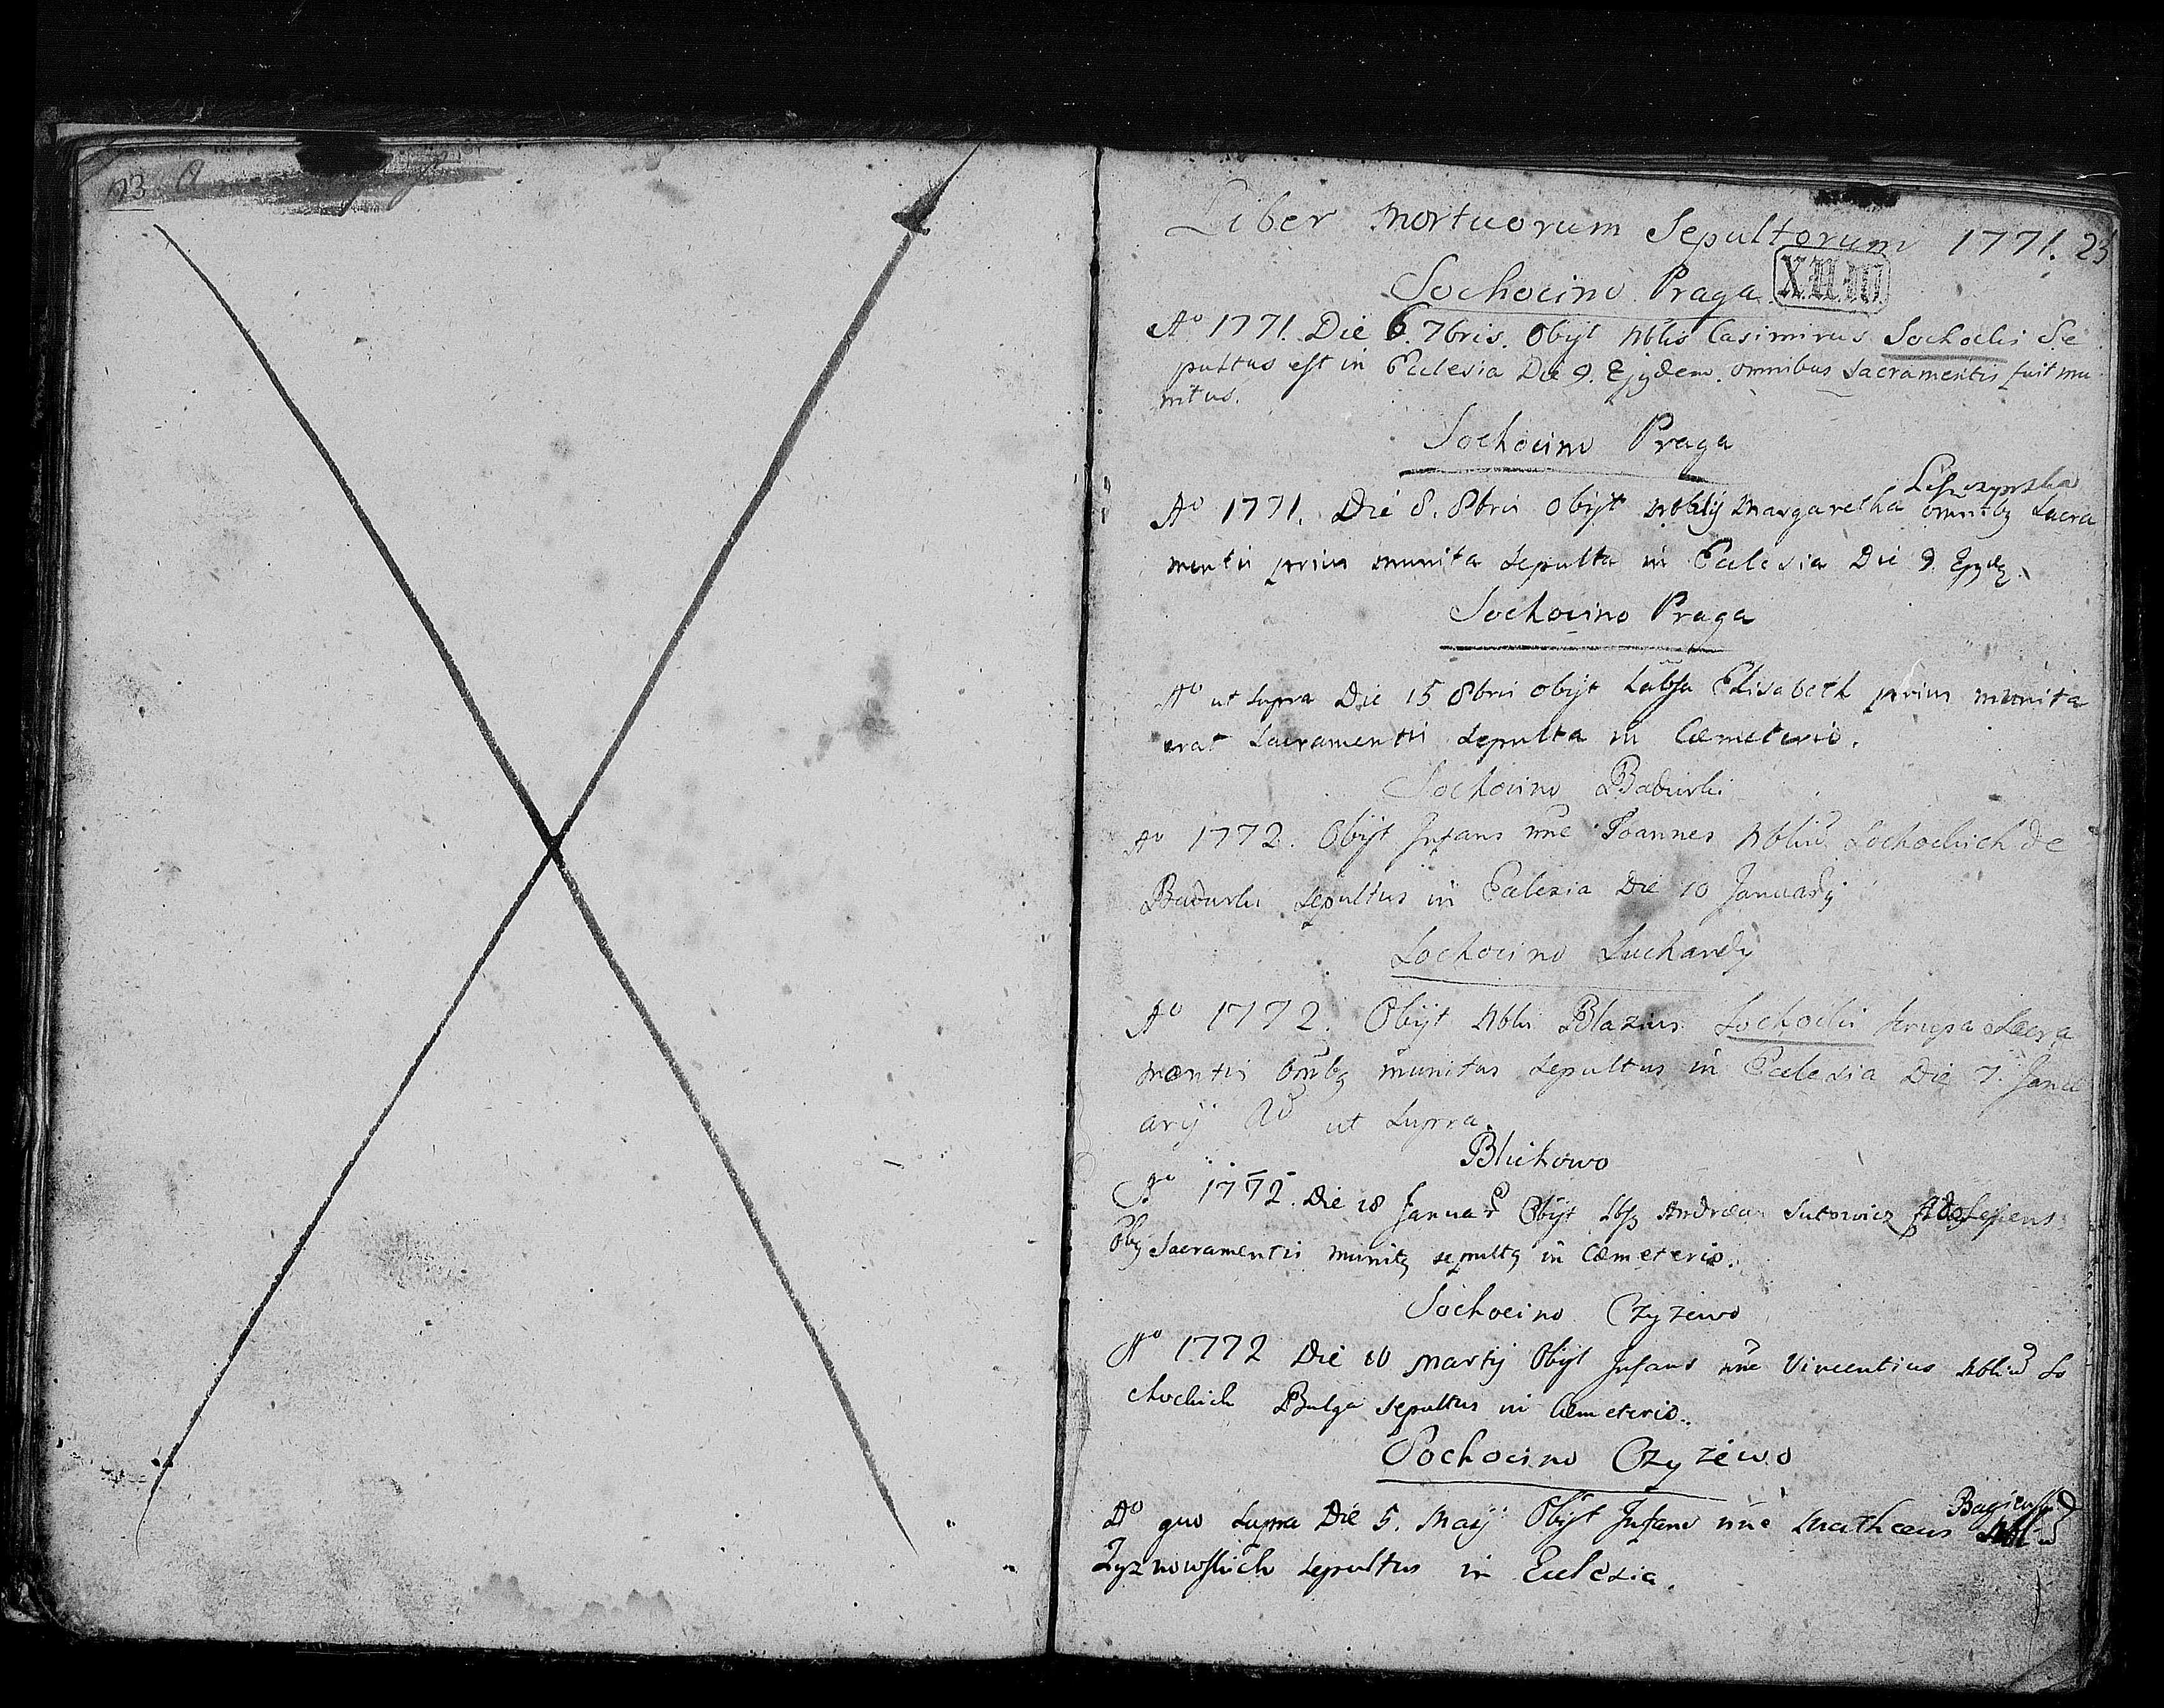 Liber Mortuorum Sepultorum 1771. 23
Sochocino Praga
Aº 1771. Die 6. 7bris. Obijt Nblis Casimirus Sochocki Se
pultus est in Ecclesia Die 9. Ejusdem. omnibus Sacramentis fuit mu
nitus.
Sochocino Praga
Aº 1771. Die 8. 8bris obijt Margaretha omnibq Sacra
mentis prius munita Sepulta in Ecclesia Die 9
Sochocino Praga
Aº ut supra Die 15 8bris obijt Elisabeth prius munita
erat Sacramentis Sepulta in Cæmeterio.
Sochocino Badurki
Aº 1772. Obijt Infans nne Joannes Sochockich de
Badurki Sepultus in Ecclesia Die 10 Januarij
Sochocino Suchardy
Aº 1772. Obijt Nblis Blazius Sochocki Sacra
mentis munitus Sepultus in Ecclesia Die 7. Janu
arij Aº ut Supra.
Blichowo
Aº 1772. Die 18 Obijt Andreas
Sacramentis munitq sepultq in Cæmeterio.
Sochocino Czyzewo
Aº 1772 Die 10 Martij Obijt Infans nne Vincentius So
chockich Bulga Sepultus in Cæmeterio.
Sochocino Czyzewo
Aº quo Supra Die 5. Maij Obijt Infans nne Mathæus
Zyznowskich Sepultus in Ecclesia.